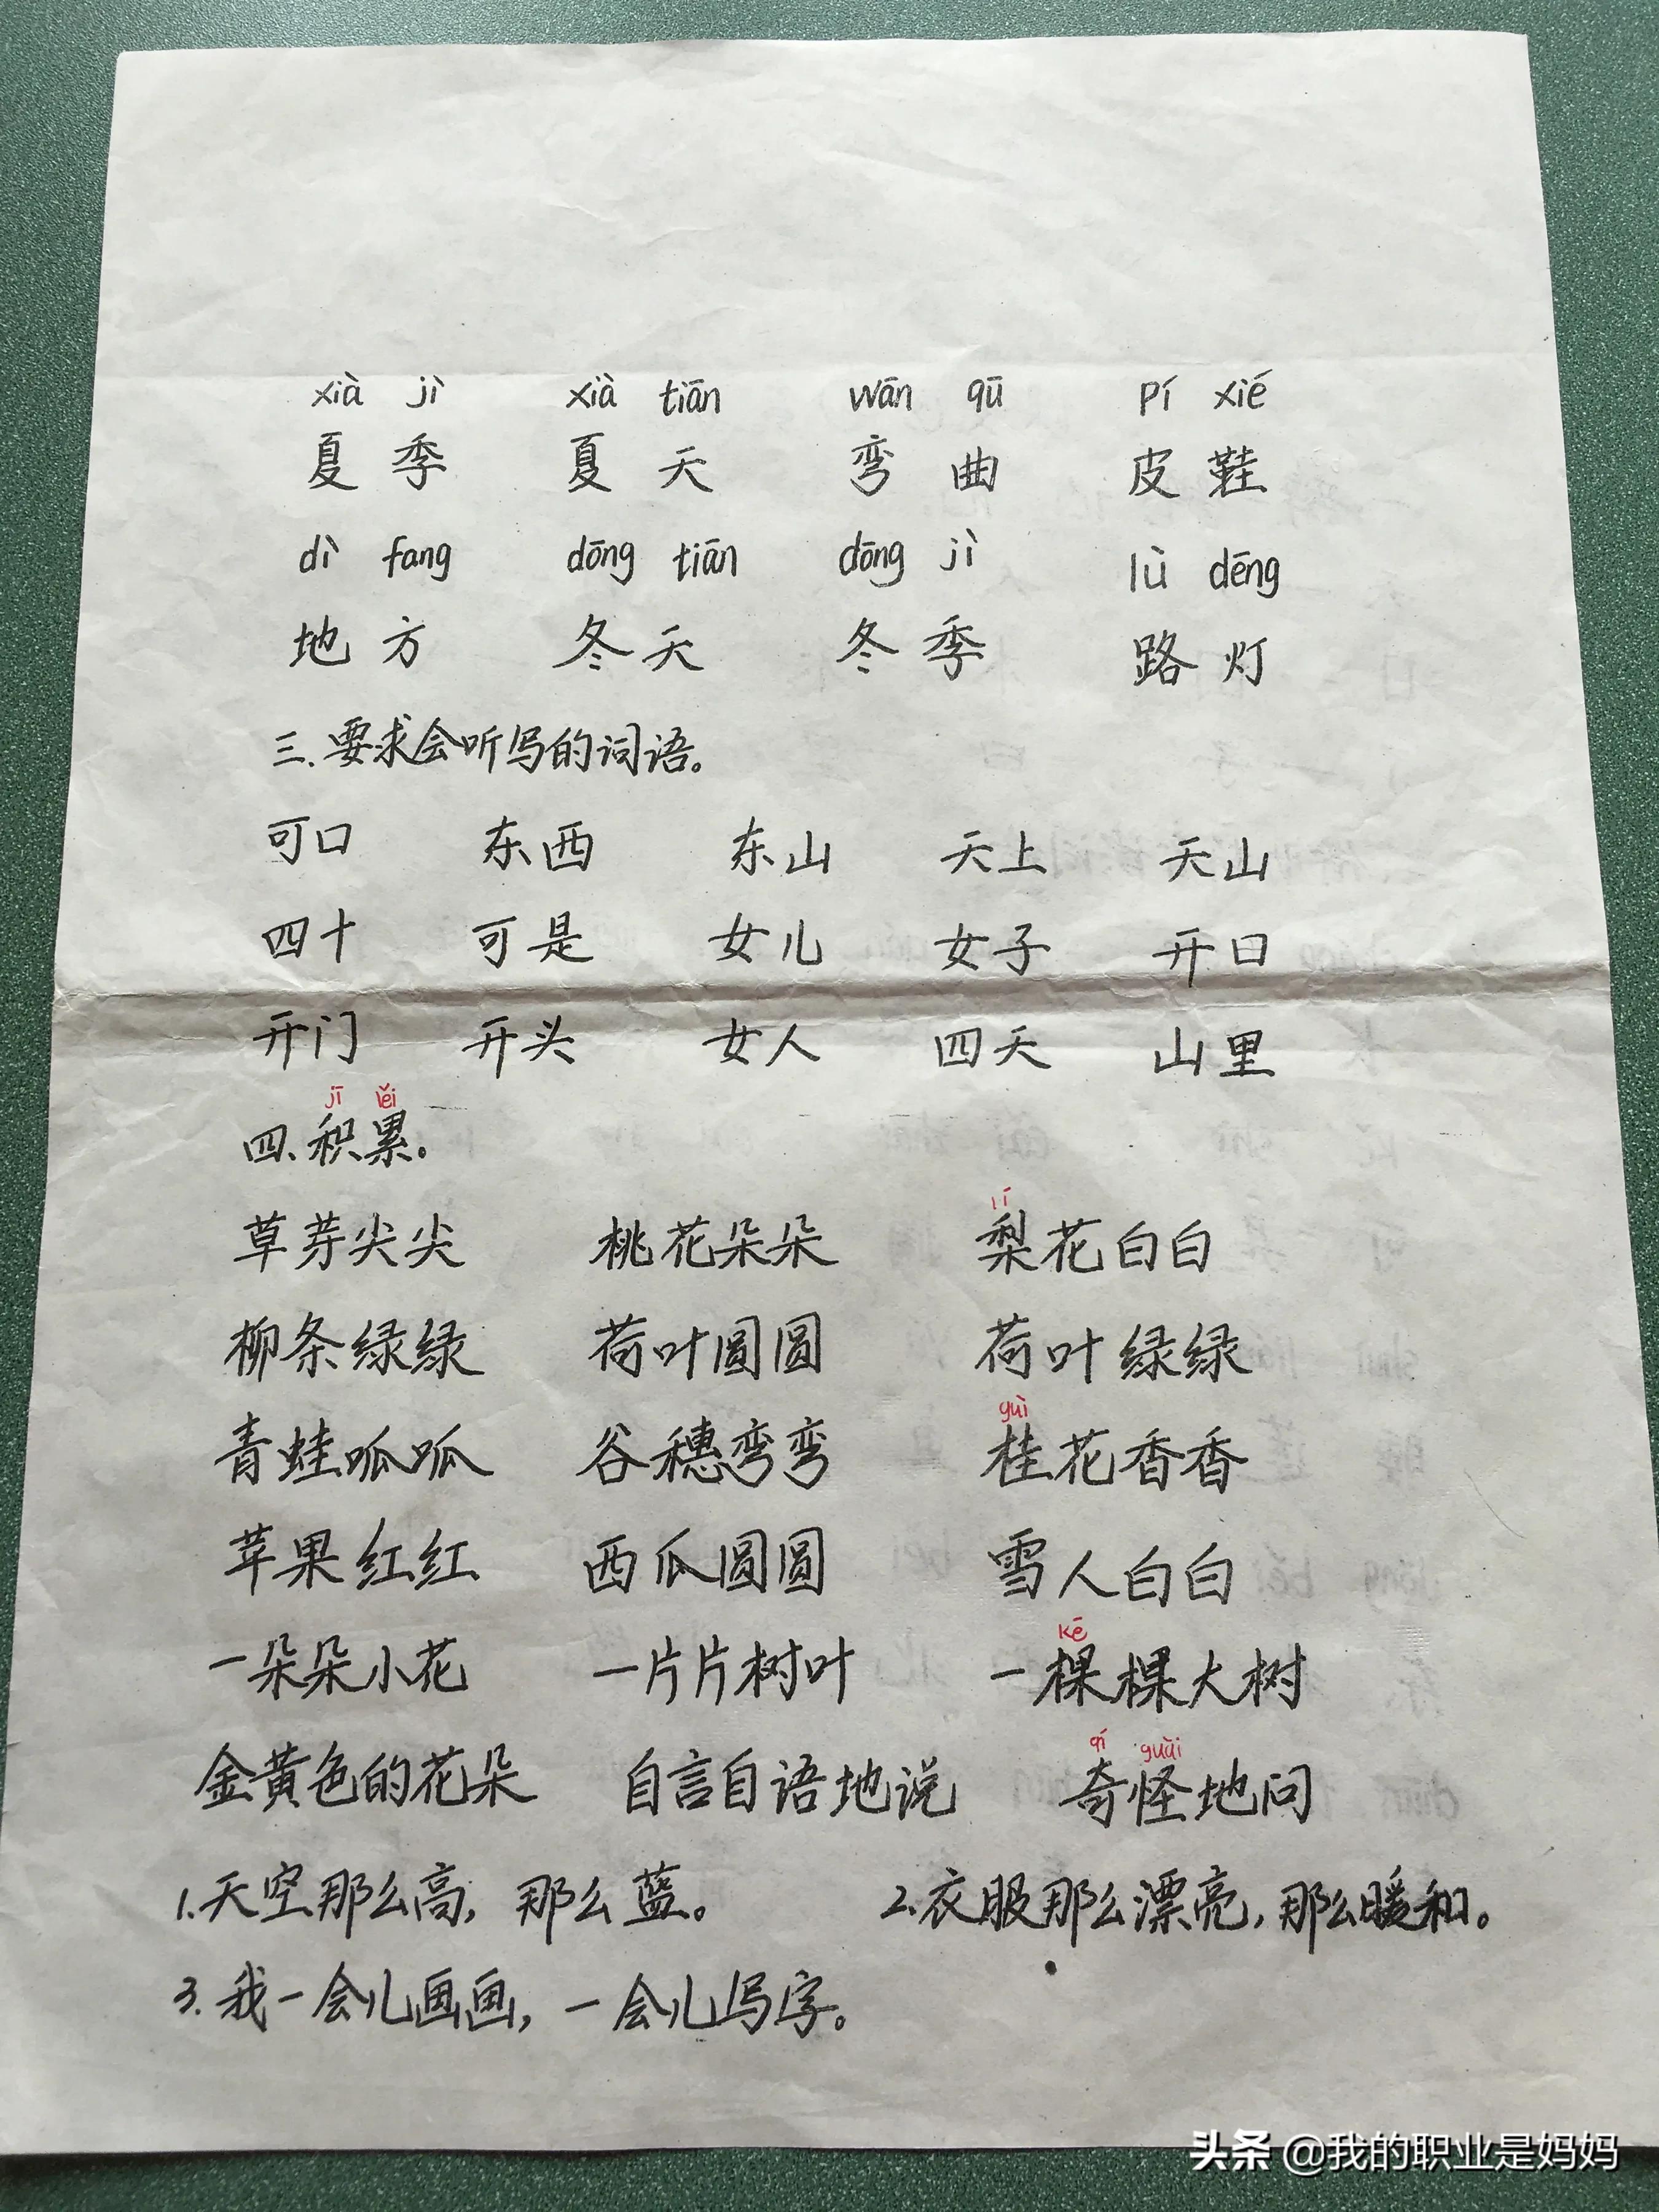 xià jì xià tiān wān qū pí xié
夏季 夏天 弯曲 皮鞋
dì fang dōng tiān dōng jì lù dēng
地方 冬天 冬季 路灯
三.要求会听写的词语。
可口 东西 东山 天上 天山
四十 可是 女儿 女子 开口
开门 开头 女人 四天 山里
jī lěi
四、积累。
lí
草芽尖尖 桃花朵朵 梨花白白
柳条绿绿 荷叶圆圆 荷叶绿绿
guì
青蛙呱呱 谷穗弯弯 桂花香香
苹果红红 西瓜圆圆 雪人白白
kē
一朵朵小花 一片片树叶 一棵棵大树
qí guài
金黄色的花朵 自言自语地说 奇怪地问
1.天空那么高,那么蓝。 2.衣服那么漂亮,那么暖和。
3.我一会儿画画,一会儿写字。
头条 @我的职业是妈妈